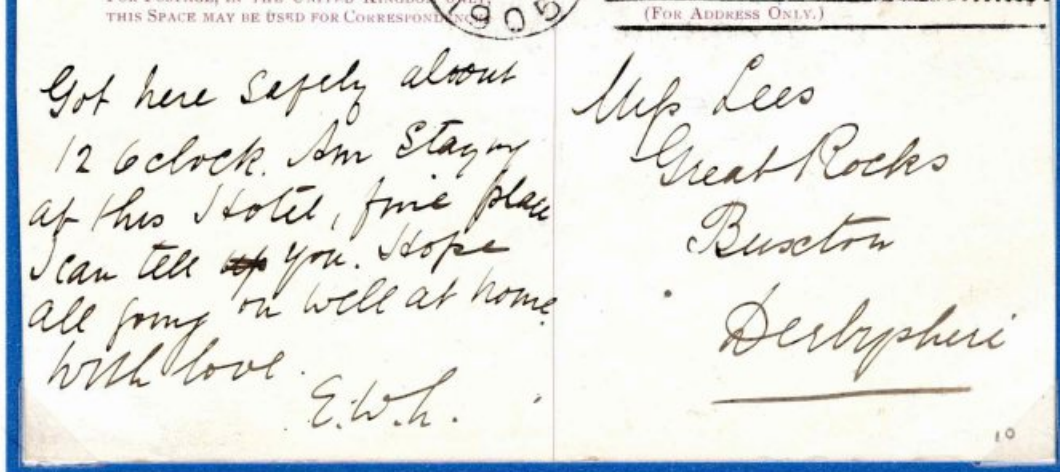 THIS SPACE MAY BE USED FOR CORRESPONDENCE
905
(FOR ADDRESS ONLY.)
Got here safely about
12 Oclock. Am Staying
at this Hotel, fine place
I can tell you. Hope
all going on well at home.
With love.
E.W.L.
Miss Lees
Great Rocks
Buxton
Derbyshire
10